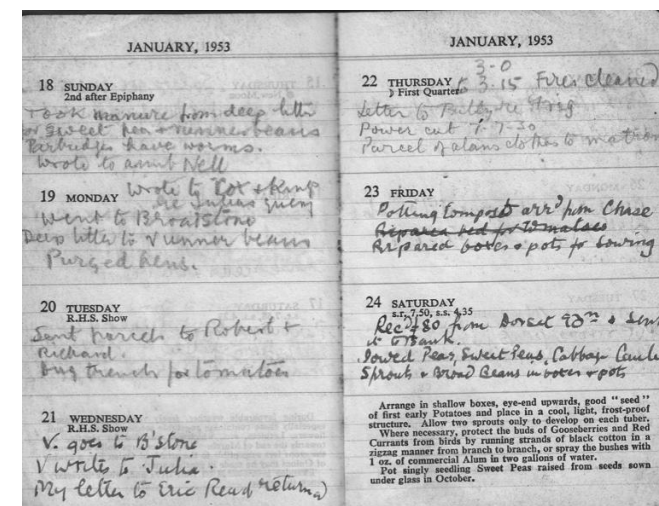 JANUARY, 1953
18 SUNDAY
2nd after Epiphany
Took manure from deep litter
for sweet peas + runner beans
Partridges have worms.
Wrote to aunt Nell
19 MONDAY Wrote to Cox + King
re Julias
Went to Broadstone
Deep litter to runner beans
Purged hens.
20 TUESDAY
R.H.S. Show
Sent parcels to Robert +
Richard.
Dug trench for tomatoes
21 WEDNESDAY
R.H.S. Show
V. goes to B'stone
V writes to Julia.
My letter to Eric Read returned
JANUARY, 1953
3-0
22 THURSDAY 3.15 Fires cleaned
☽ First Quarter
Letter to
Power cut 7-7-30
Parcel of alans clothes to matron
23 FRIDAY
Potting Compost arrd from Chase
Prepared bed for tomatoes
Prepared boxes + pots for sowing
24 SATURDAY
s.r. 7.50, s.s. 4.35
Recd £80 from Dorset + sent
it to Bank.
Sowed Peas, Sweet Peas, Cabbage Caule
Sprouts + Broad Beans in boxes + pots
Arrange in shallow boxes, eye-end upwards, good "seed"
of first early Potatoes and place in a cool, light, frost-proof
structure. Allow two sprouts only to develop on each tuber.
Where necessary, protect the buds of Gooseberries and Red
Currants from birds by running strands of black cotton in a
zigzag manner from branch to branch, or spray the bushes with
1 oz. of commercial Alum in two gallons of water.
Pot singly seedling Sweet Peas raised from seeds sown
under glass in October.